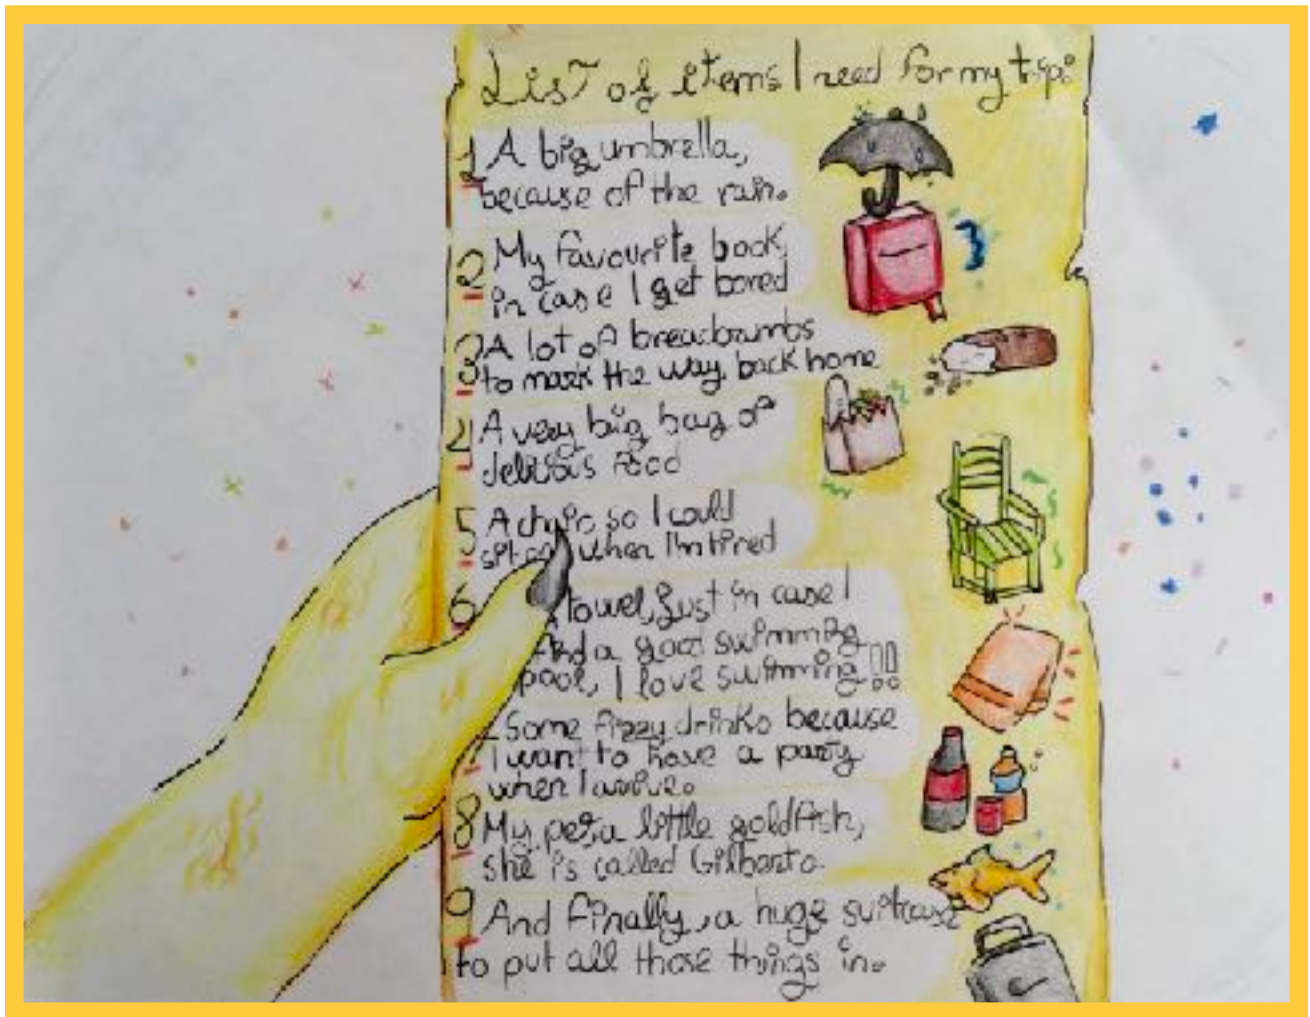 List of items I need for my trip:
1 A big umbrella,
because of the rain.
2 My favourite book,
in case I get bored
3 A lot of breadcrumbs
to mark the way back home
4 A very big bag of
food
5 A chair so I could
sit on when I'm tired
6 towel, just in case I
find a good swimming
pool, I love swimming!!
7 Some fizzy drinks because
I want to have a party
when I arrive.
8 My pet, a little goldfish,
she is called Gilberta.
9 And finally, a huge suitcase
to put all those things in.